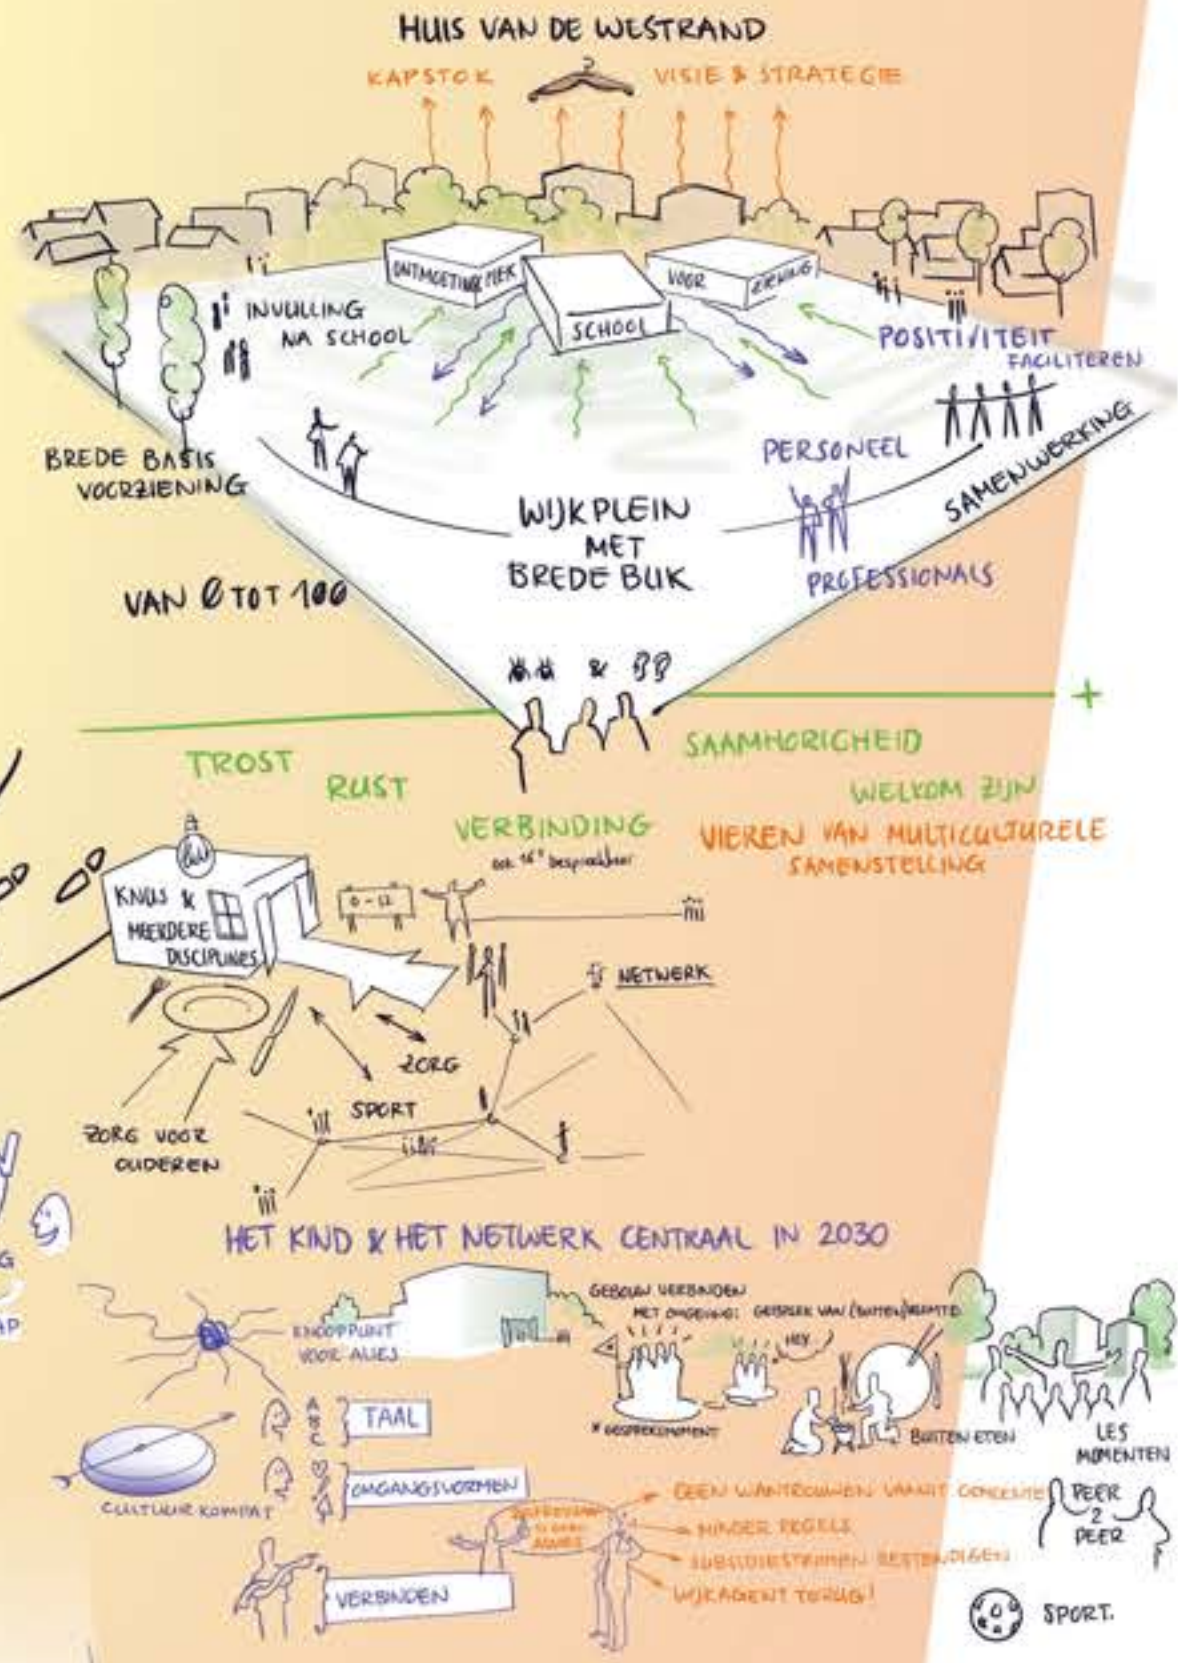 HUIS VAN DE WESTRAND
KAPSTOK
VISIE & STRATEGIE
ONTMOETING
SCHOOL
VOOR
INVULLING
NA SCHOOL
POSITIVITEIT
FACILITEREN
BREDE BASIS
VOORZIENING
PERSONEEL
SAMENWERKING
WIJKPLEIN
MET
BREDE BLIK
PROFESSIONALS
VAN 0 TOT 100
&
+
TROST
RUST
SAAMHORIGHEID
WELKOM ZIJN
VERBINDING
VIEREN VAN MULTICULTURELE
SAMENSTELLING
KNUS &
MEERDERE
DISCIPLINES
0-12
NETWERK
ZORG
SPORT
ZORG VOOR
OUDEREN
HET KIND & HET NETWERK CENTRAAL IN 2030
KNOOPPUNT
VOOR ALLES
GEBOUW VERBINDEN
MET OMGEVING:
HEY
* GESPREKSMOMENT
BUITEN ETEN
LES
MOMENTEN
A
B
C
TAAL
CULTUUR KOMPAT
OMGANGSVORMEN
VERBINDEN
GEEN WANTROUWEN VANUIT GEMEENTE
MINDER REGELS
SUBSIDIESTROMEN BESTENDIGEN
WIJKAGENT TERUG!
PEER
2
PEER
SPORT.